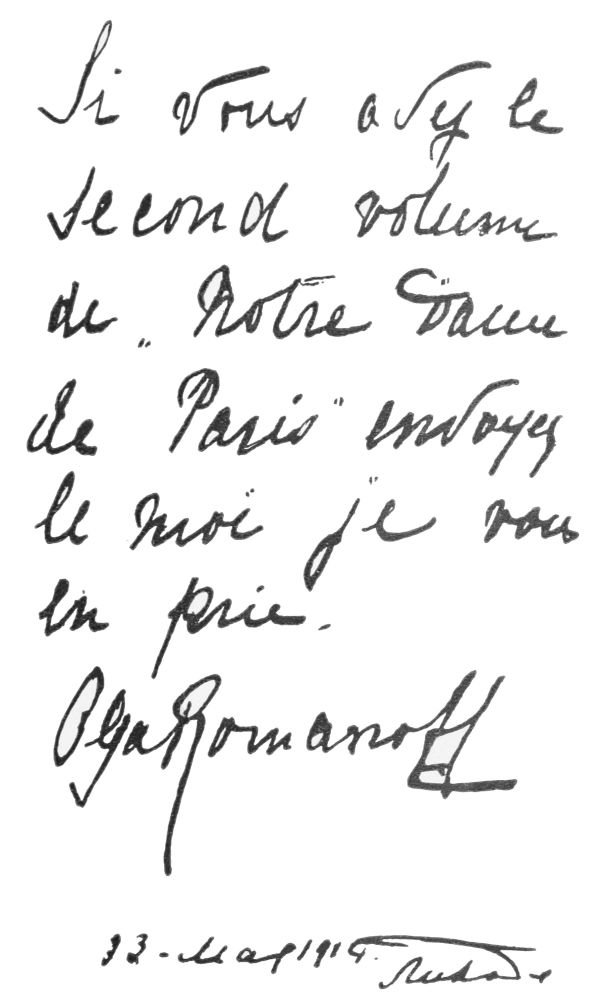 Si vous avez le
second volume
de „Notre Dame
de Paris" envoyez
le moi je vous
en prie.
Olga Romanoff
1914.